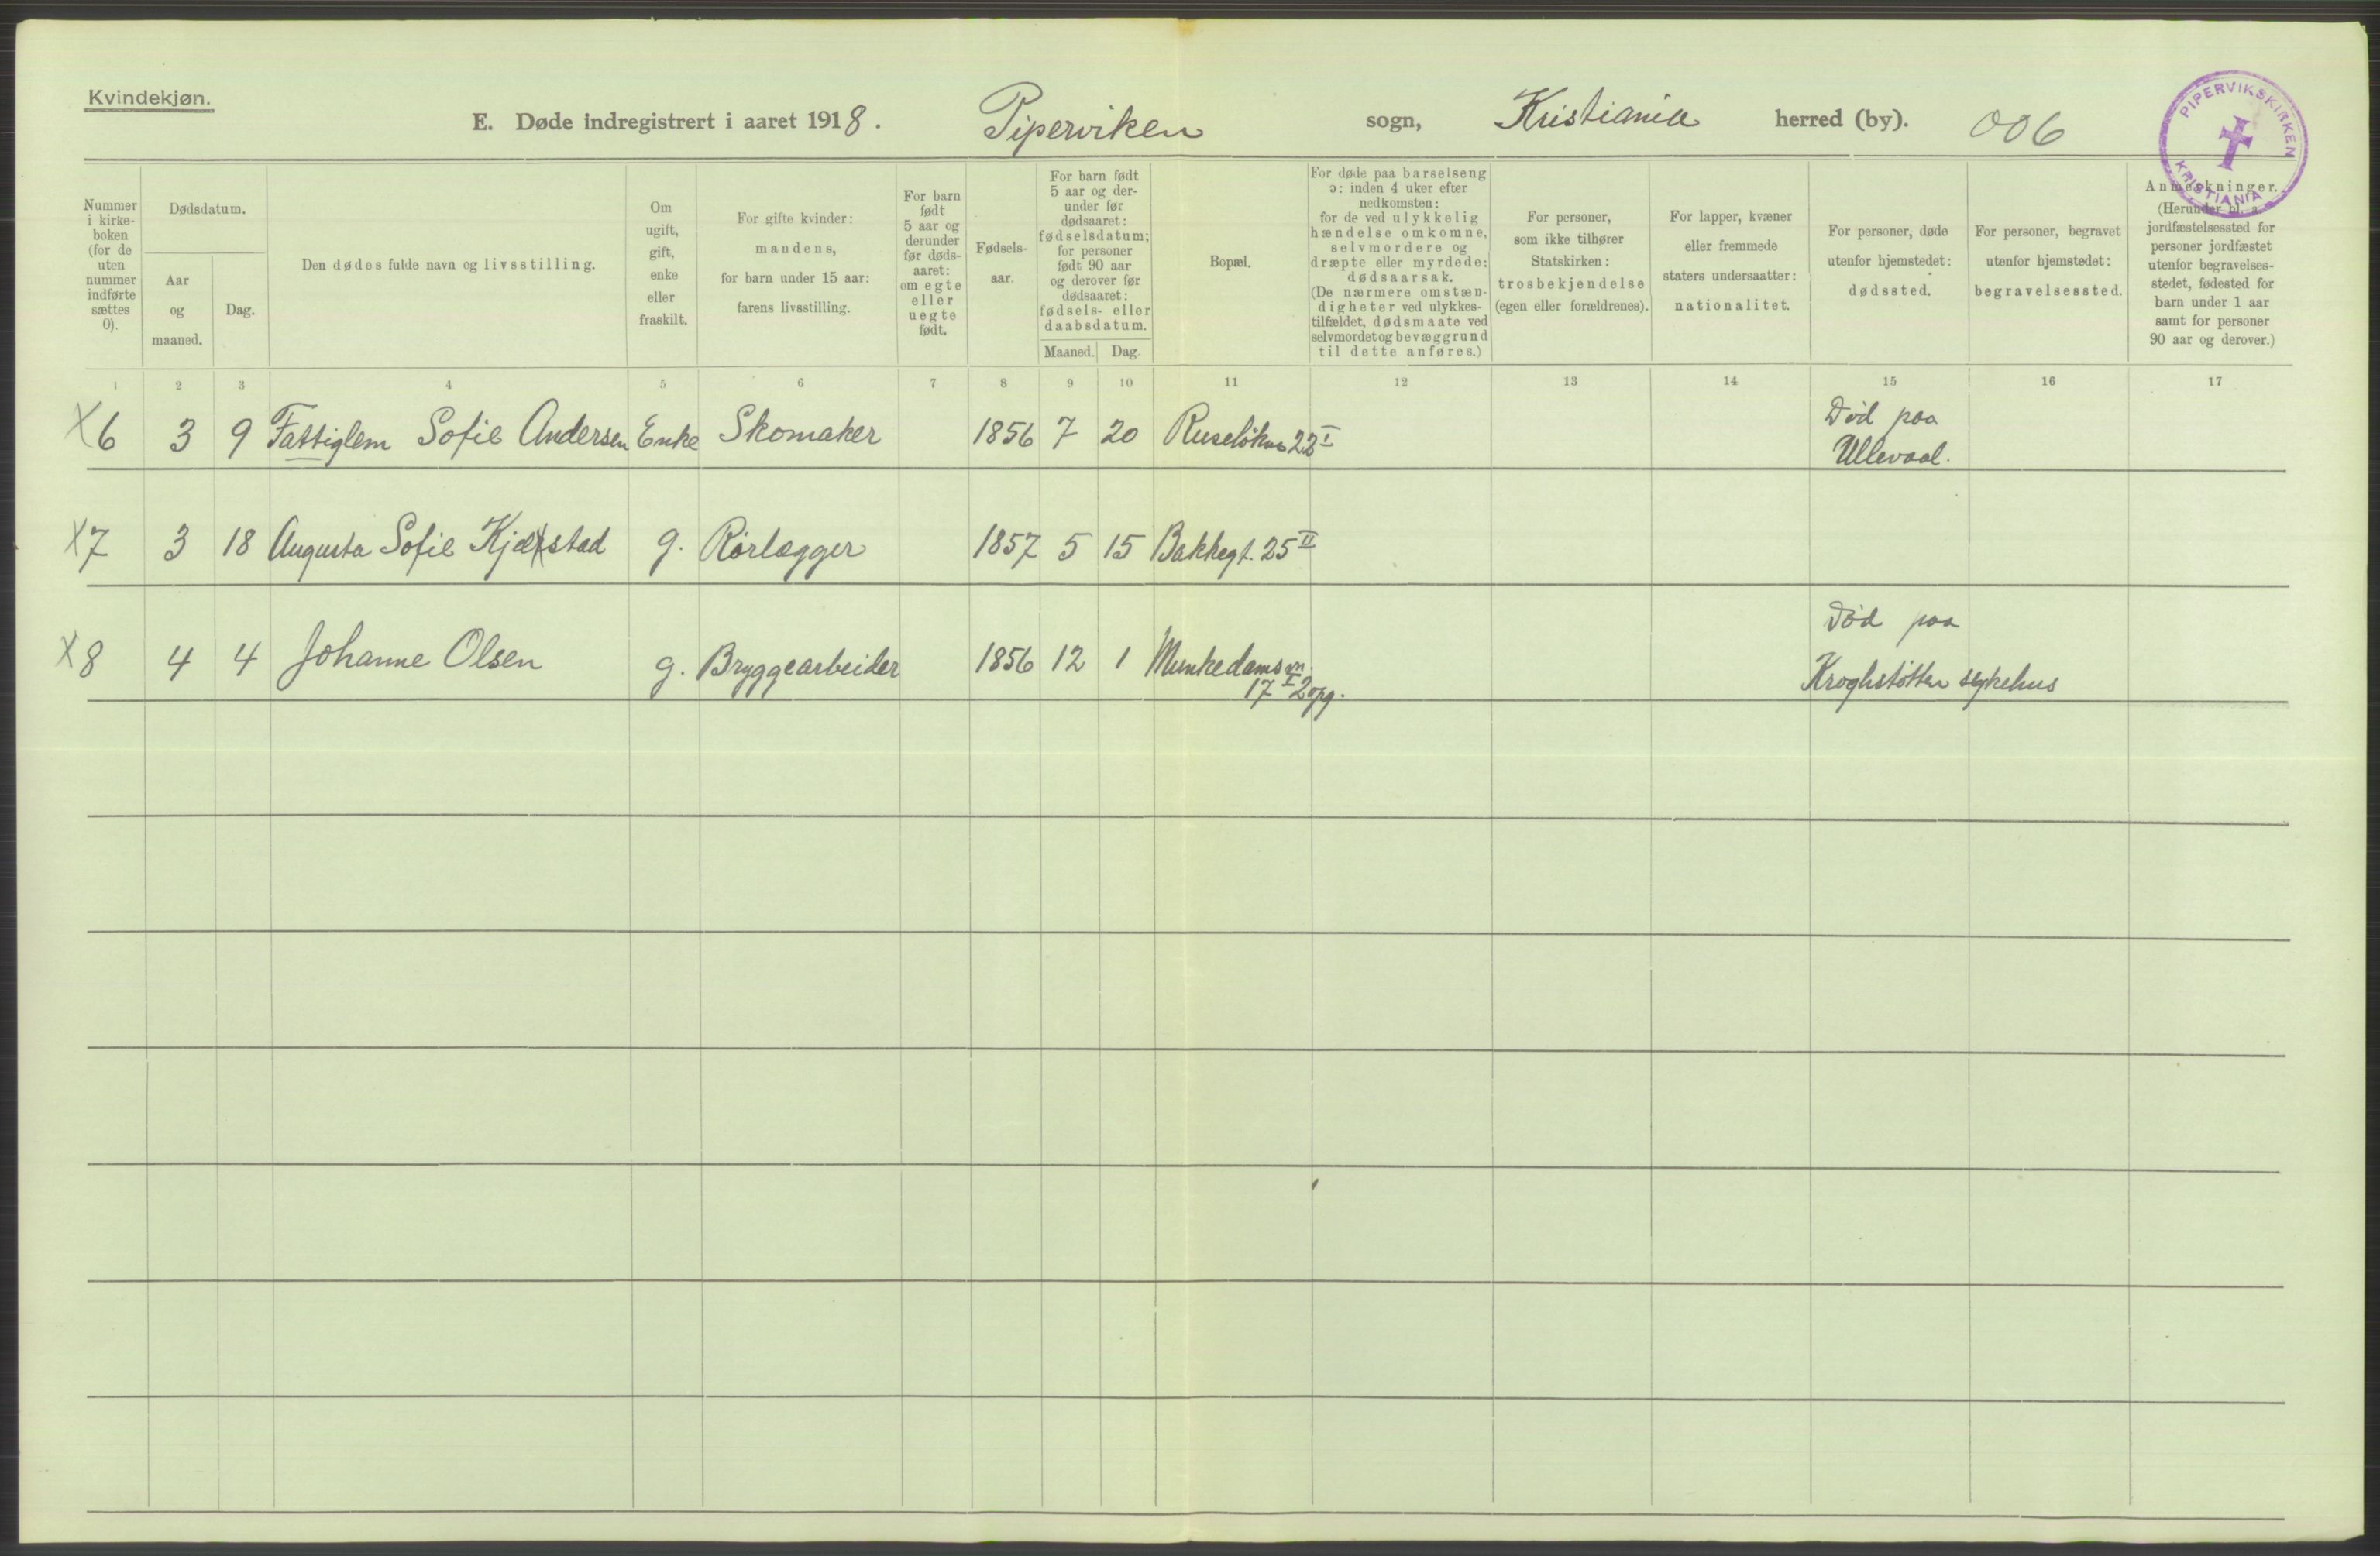 Kvindekjøn.
E. Døde indregistrert i aaret 1918. Piperviken sogn, Kristiania herred (by). 006
PIPERVIKSKIRKEN
KRISTIANIA
Nummer
i kirke-
boken
(for de
uten
nummer
indførte
sættes
0).
Dødsdatum.
Aar
og
maaned.
Dag.
Den dødes fulde navn og livsstilling.
Om
ugift,
gift,
enke
eller
fraskilt.
For gifte kvinder:
mandens,
for barn under 15 aar:
farens livsstilling.
For barn
født
5 aar og
derunder
før døds-
aaret:
om egte
eller
uegte
født.
Fødsels-
aar.
For barn født
5 aar og der-
under før
dødsaaret:
fødselsdatum;
for personer
født 90 aar
og derover før
dødsaaret:
fødsels- eller
daabsdatum.
Maaned. Dag.
Bopæl.
For døde paa barselseng
ɔ: inden 4 uker efter
nedkomsten:
for de ved ulykkelig
hændelse omkomne,
selvmordere og
dræpte eller myrdede:
dødsaarsak.
(De nærmere omstæn-
digheter ved ulykkes-
tilfældet, dødsmaate ved
selvmordet og bevæggrund
til dette anføres.)
For personer,
som ikke tilhører
Statskirken:
trosbekjendelse
(egen eller forældrenes).
For lapper, kvæner
eller fremmede
staters undersaatter:
nationalitet.
For personer, døde
utenfor hjemstedet:
dødssted.
For personer, begravet
utenfor hjemstedet:
begravelsessted.
Anmerkninger.
(Herunder bl. a.
jordfæstelsessted for
personer jordfæstet
utenfor begravelses-
stedet, fødested for
barn under 1 aar
samt for personer
90 aar og derover.)
1 2 3 4 5 6 7 8 9 10 11 12 13 14 15 16 17
X6 3 9 Fattiglem Sofie Andersen Enke Skomaker 1856 7 20 22 I Død paa
Ullevaal.
X7 3 18 Augusta Sofie Kjelstad g. Rørlægger 1857 5 15 Bakkegt. 25 II
X8 4 4 Johanne Olsen g. Bryggearbeider 1856 12 1 Munkedamsvn.
17 I 2 opg.
Død paa
Kroghstøtten sykehus